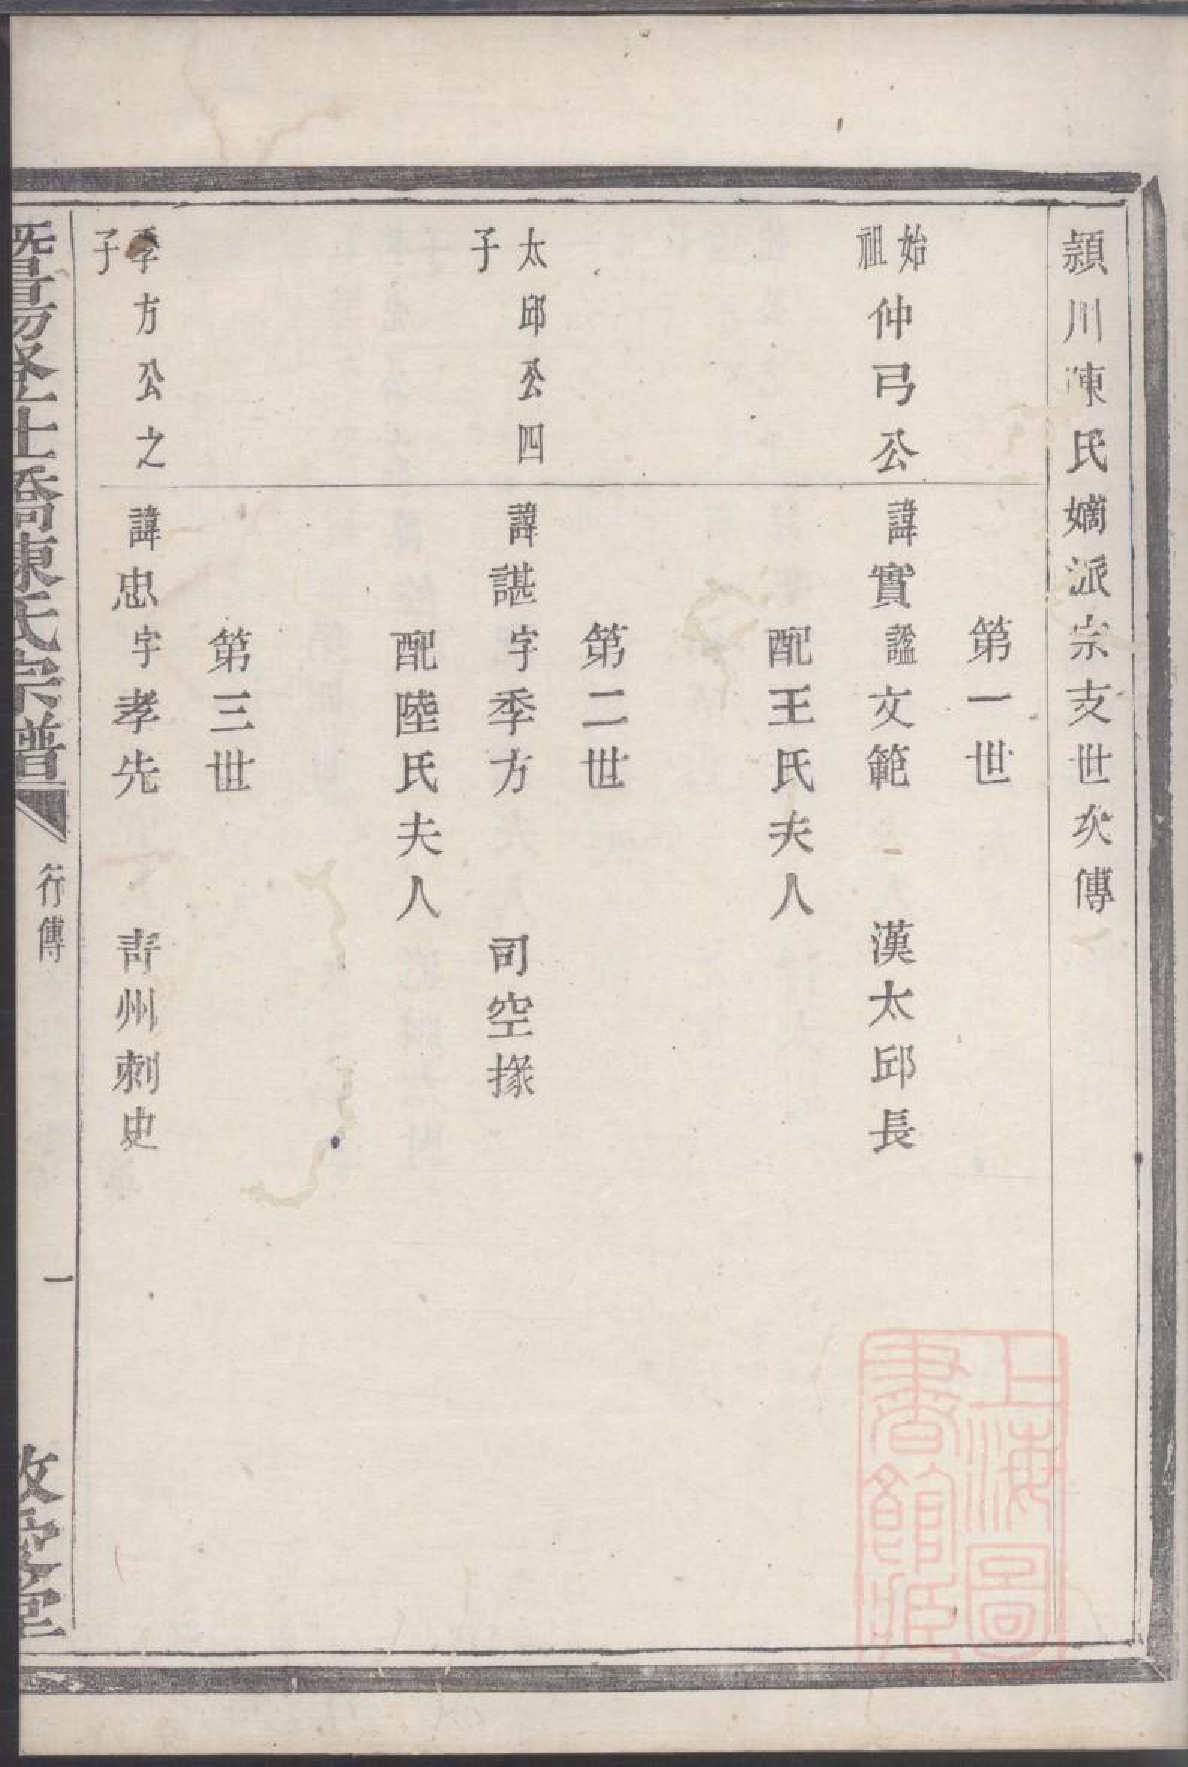 潁川陳氏嫡派宗支世次傳
第一世
始祖仲弓公
諱實諡文範 漢太邱長
配王氏夫人
第二世
太邱公四子
諱諶字季方 司空掾
配陸氏夫人
第三世
季方公之子
諱忠字孝先 青州刺史
暨陽登仕橋陳氏宗譜
行傳
一
上海圖書館藏